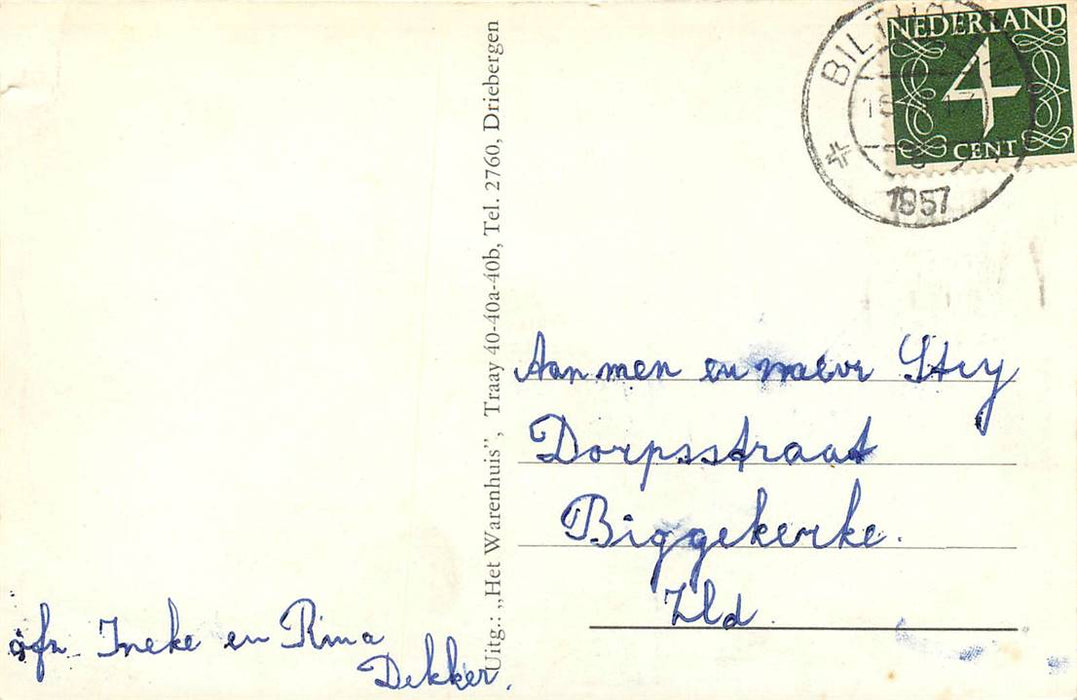 NEDERLAND
4
CENT
BILTHOVEN
1957
Uitg.: „Het Warenhuis”, Traay 40-40a-40b, Tel. 2760, Driebergen
Aan men en mevr
Dorpsstraat
Biggekerke.
Zld
afz Ineke en Rina
Dekker.